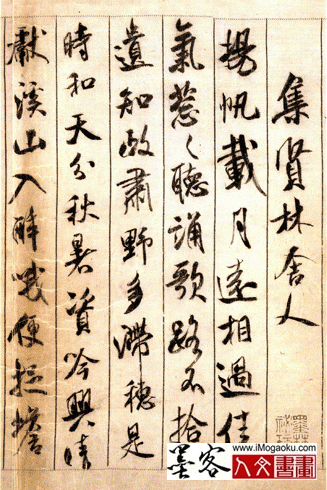 集賢林舍人
揚帆載月遠相過佳
氣葱〻聽誦歌路不拾
遺知政肅野多滯穗是
時和天分秋暑資吟興晴
獻溪山入醉哦便捉蟾
墨客
www.iMogaoku.com
人文書畫